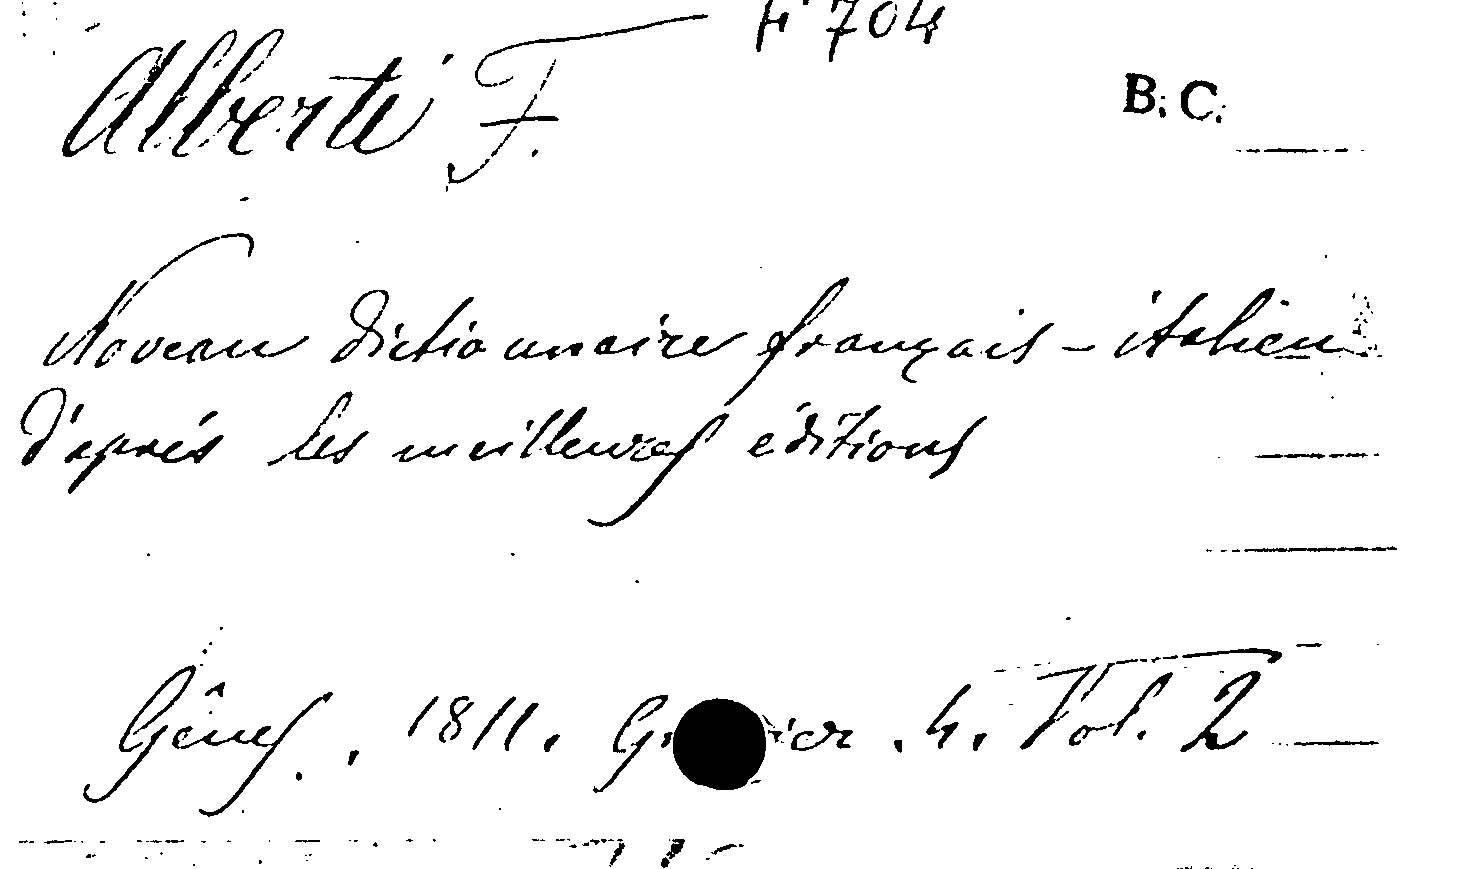 F 704
Alberti F.
B. C.
Noveau dictionnaire français - italien
d'après les meilleures éditions
Gênes. , 1811. . 4. Vol. 2